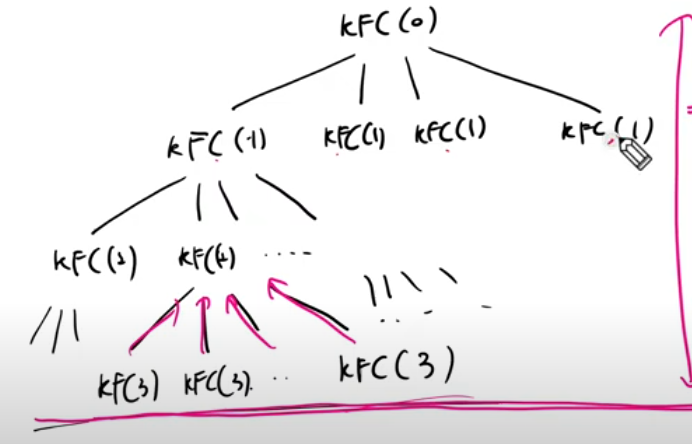 kFC(0)
kFC(1) kFC(1) kFC(1) kFC(1)
kFC(2) kF(2) ....
kF(3) kFC(3). .. kFC(3)